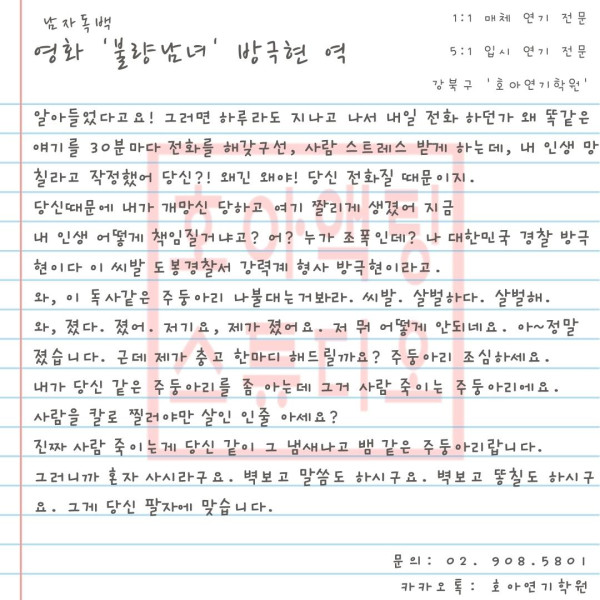 남자독백
1:1 매체 연기 전문
영화 '불량남녀' 방극현 역
5:1 입시 연기 전문
강북구 '호아연기학원'
알아들었다고요! 그러면 하루라도 지나고 나서 내일 전화 하던가 왜 똑같은
얘기를 30분마다 전화를 해갖구선, 사람 스트레스 받게 하는데, 내 인생 망
칠라고 작정했어 당신?! 왜긴 왜야! 당신 전화질 때문이지.
당신때문에 내가 개망신 당하고 여기 짤리게 생겼어 지금
내 인생 어떻게 책임질거냐고? 어? 누가 조폭인데? 나 대한민국 경찰 방극
현이다 이 씨발 도봉경찰서 강력계 형사 방극현이라고.
와, 이 독사같은 주둥아리 나불대는거봐라. 씨발. 살벌하다. 살벌해.
와, 졌다. 졌어. 저기요, 제가 졌어요. 저 뭐 어떻게 안되네요. 아~정말
졌습니다. 근데 제가 충고 한마디 해드릴까요? 주둥아리 조심하세요.
내가 당신 같은 주둥아리를 좀 아는데 그거 사람 죽이는 주둥아리에요.
사람을 칼로 찔러야만 살인 인줄 아세요?
진짜 사람 죽이는게 당신 같이 그 냄새나고 뱀 같은 주둥아리랍니다.
그러니까 혼자 사시라구요. 벽보고 말씀도 하시구요. 벽보고 똥칠도 하시구
요. 그게 당신 팔자에 맞습니다.
호아액팅
스튜디오
문의: 02. 908.5801
카카오톡: 호아연기학원